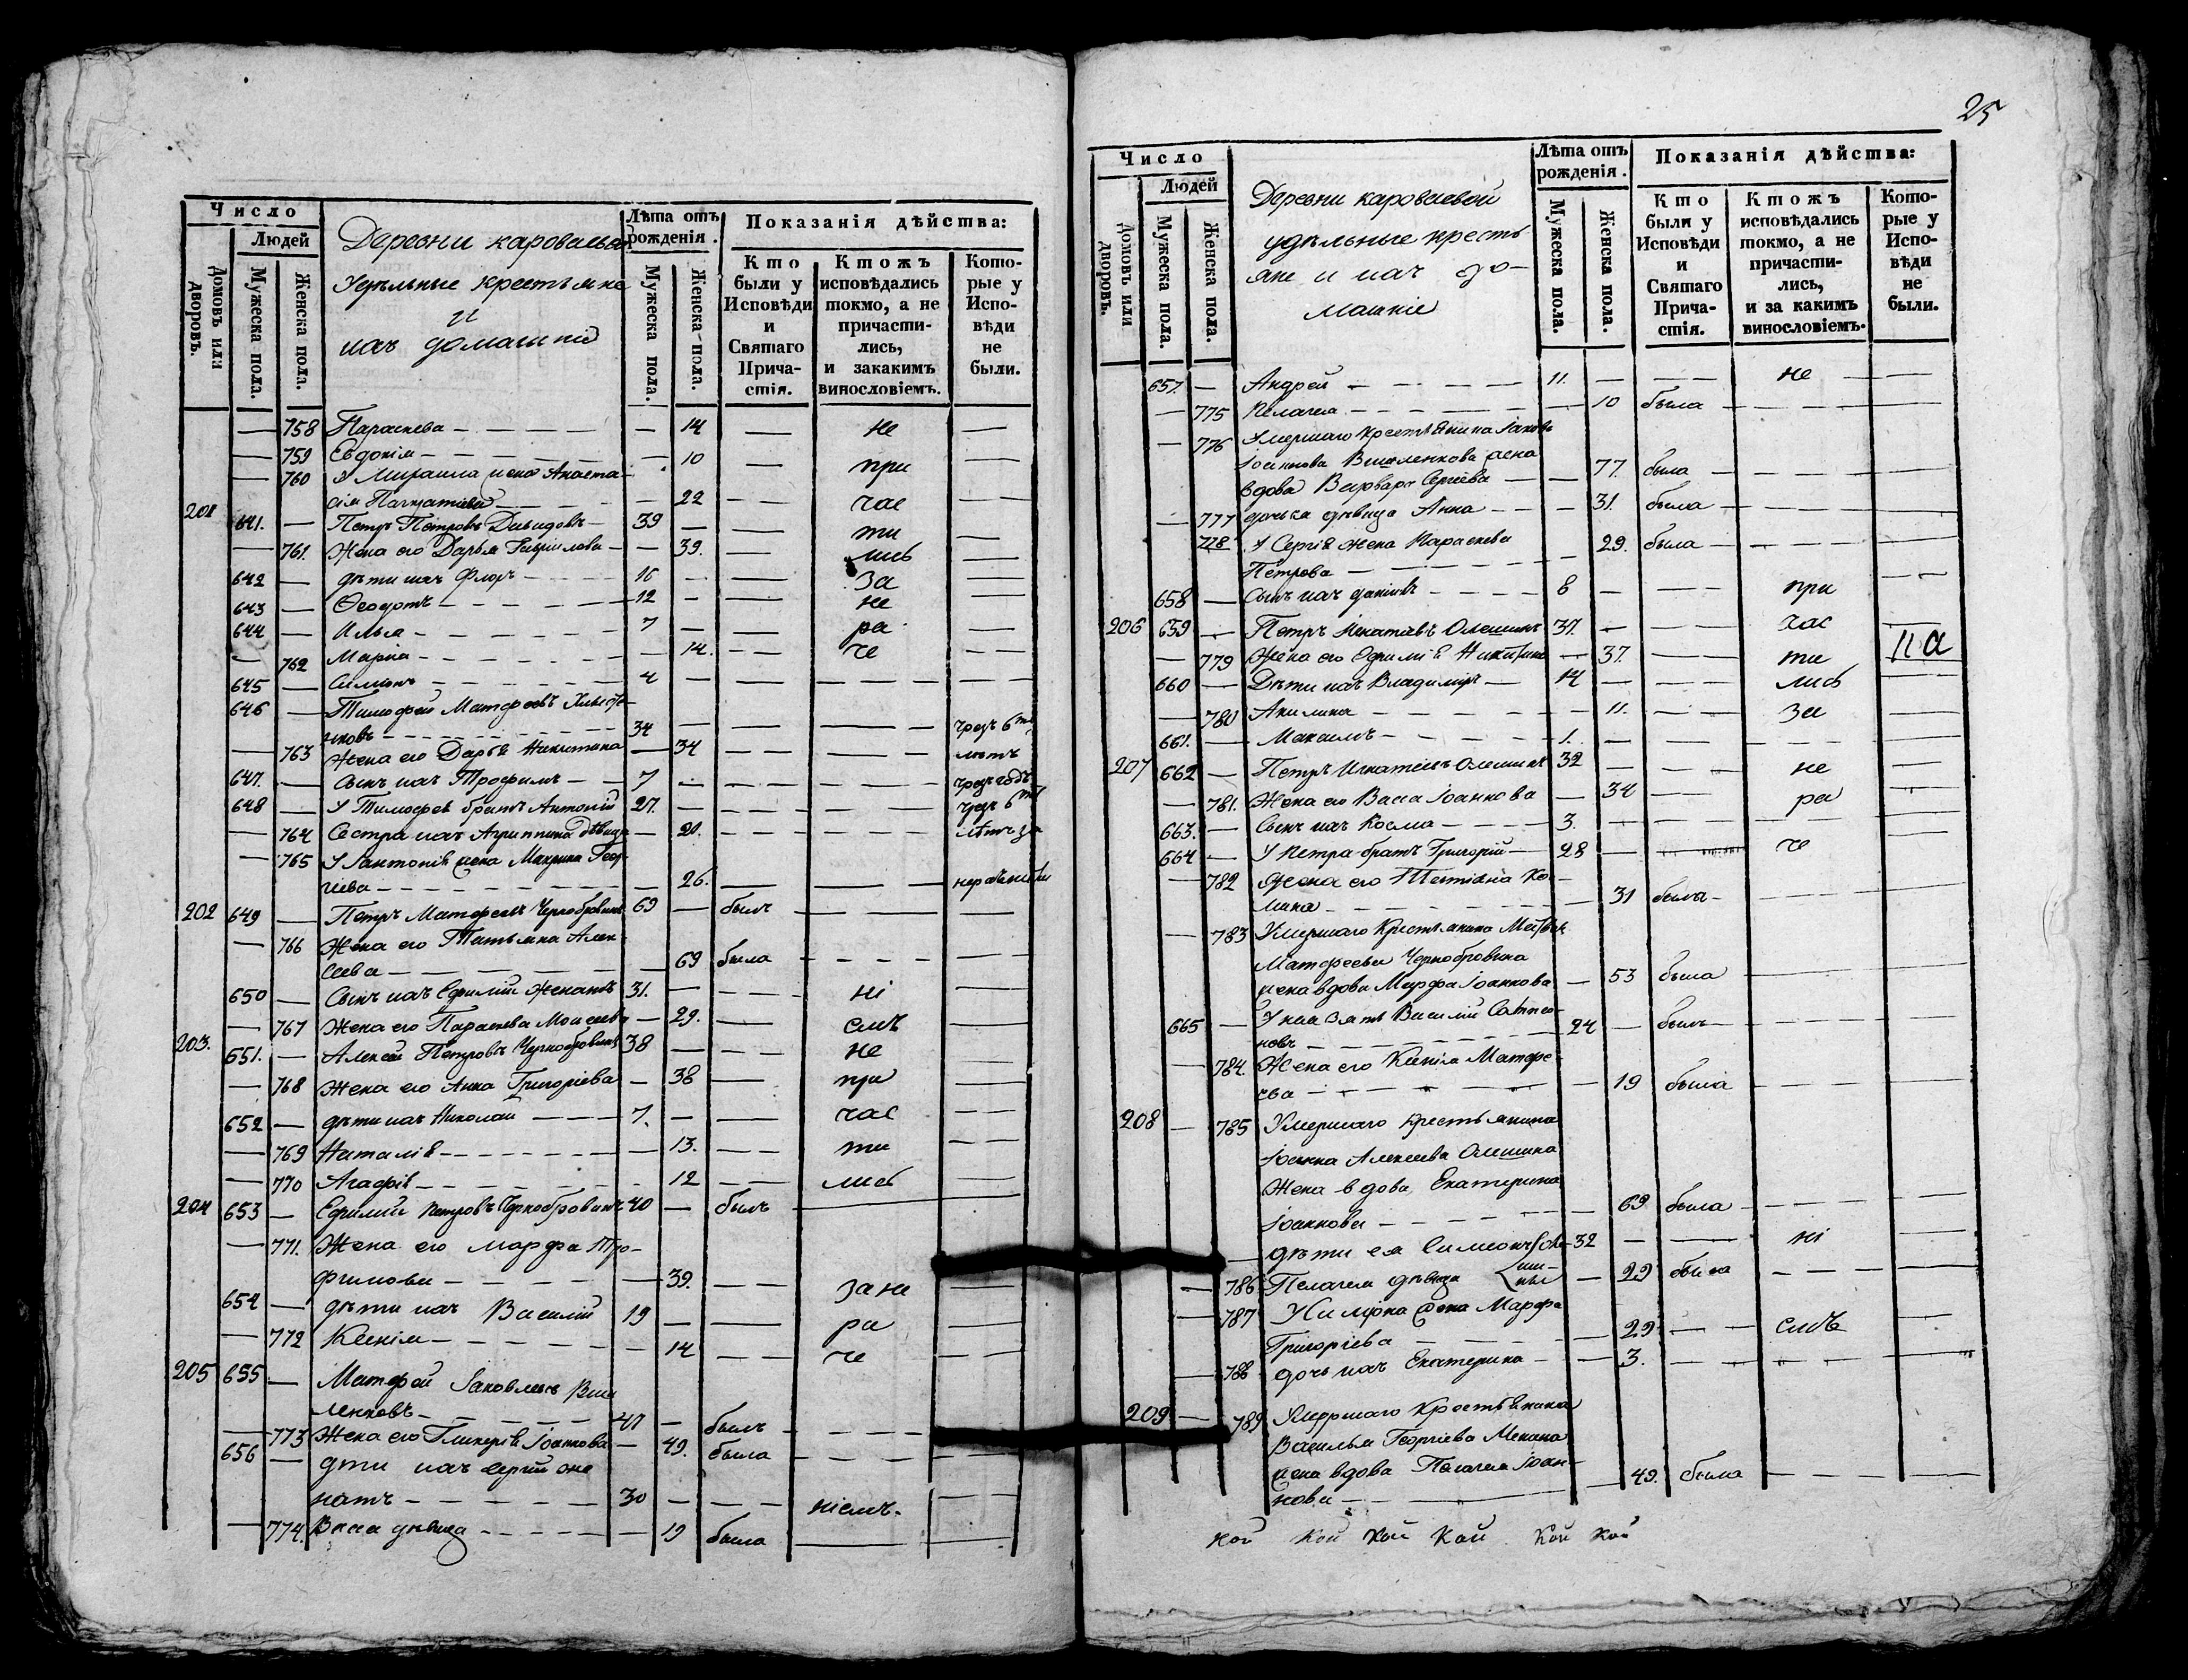 25
Число
Людей
Домовъ или дворовъ.
Мужеска пола.
Женска пола.
Деревни
Удѣльные крестьяне
и
ихъ домашніе
Лѣта отъ рожденія.
Мужеска пола.
Женска пола.
Показанія дѣйства:
Кто были у Исповѣди и Святаго Причастія.
Ктожъ исповѣдались токмо, а не причастились, и закакимъ винословіемъ.
Которые у Исповѣди не были.
758 Параскева 14 не
759 Евдокія 10 при
760 У Михаила жена Анаста-
сія 22 час
201 641. Петръ Петровъ Давидовъ 39 ти
761. Жена его Дарья Гавриилова 39. лись
642 дѣти ихъ Флоръ 16 за
643 Ѳеодотъ 12 не
644 Илья 7 ра
762 Марія 14. че
645 Симеонъ 4
646 Тимофей Матфеевъ
34 чрезъ 6
763 Жена его Дарья Никитина 34 лѣтъ
647. Сынъ ихъ Трофимъ 7 чрезъ годъ
648 У Тимофея братъ Антоній 27. чрезъ 6
764 Сестра ихъ Агриппина дѣвица 20. лѣтъ за
765 У Антонія жена Марина Геор-
гіева 26.
202 649 Петръ Матфеевъ Чернобровинъ 69 былъ
766 Жена его Татьяна Алек-
сеева 69 была
650 Сынъ ихъ Ефимій женатъ 31. ні
767 Жена его Параскева Моисеева 29. емъ
203. 651. Алексей Петровъ Чернобровинъ 38 не
768 Жена его Анна Григоріева 38 при
652 дѣти ихъ Николай 7. час
769 Наталія 13. ти
770 Агафія 12 лись
204 653 Ефимій Петровъ Чернобровинъ 40 былъ
771. Жена его Марфа Тро-
фимова 39. за не
654 дѣти ихъ Василій 19 ра
772 Ксенія 14 че
205 655 Матфей Іаковлевъ
ленковъ 47 былъ
773 Жена его Гликерія Іоаннова 49. была
656 дѣти ихъ Сергій же
натъ 30 ніемъ.
774. Васса дѣвица 19 была
Число
Людей
Домовъ или дворовъ.
Мужеска пола.
Женска пола.
Деревни Кароваевой
удѣльные кресть
яне и ихъ до-
машніе
Лѣта отъ рожденія.
Мужеска пола.
Женска пола.
Показанія дѣйства:
Кто были у Исповѣди и Святаго Причастія.
Ктожъ исповѣдались токмо, а не причастились, и за какимъ винословіемъ.
Которые у Исповѣди не были.
657. Андрей 11. не
775 Пелагея 10 была
776 Умершаго крестьянина Іаковъ
Іоаннова жена
вдова Варвара Сергіева 77. была
777 дочька дѣвица Анна 31. была
778 У Сергія жена Параскева 29. была
Петрова
658 Сынъ ихъ 8 при
206 659 Петръ Игнатіевъ Олешинъ 37. час
779 Жена его Ефимія Никитина 37. ти
660 Дѣти ихъ Владиміръ 14 лись
780 Акилина 11. за
661. Максимъ 1.
207 662 Петръ Игнатіевъ Олешинъ 32 не
781. Жена его Васса Іоаннова 34 ра
663. Сынъ ихъ Косма 3.
664 У Петра братъ Григорій 28 че
782 Жена его
мина 31 была
783 Умершаго Крестьянина
Матфеева Чернобровина
жена вдова Марфа Іоаннова 53 была
665 У нея зять Василій
новъ 24 былъ
784. Жена его Ксенія Матфе-
ева 19 была
208 785 Умершаго крестьянина
Іоанна Алексеева Олешина
Жена вдова Екатерина
Іоаннова 69 была
дѣти ея Симеонъ 32 ні
786 Пелагея дѣвица 29 была
787 У Симеона жена Марфа
Григоріева 29 емъ
788 дочь ихъ Екатерина 3.
209 789 Умершаго Крестьянина
Василья Георгіева
жена вдова Пелагея Іоан-
нова 49. была
кой кой кой кой кой кой